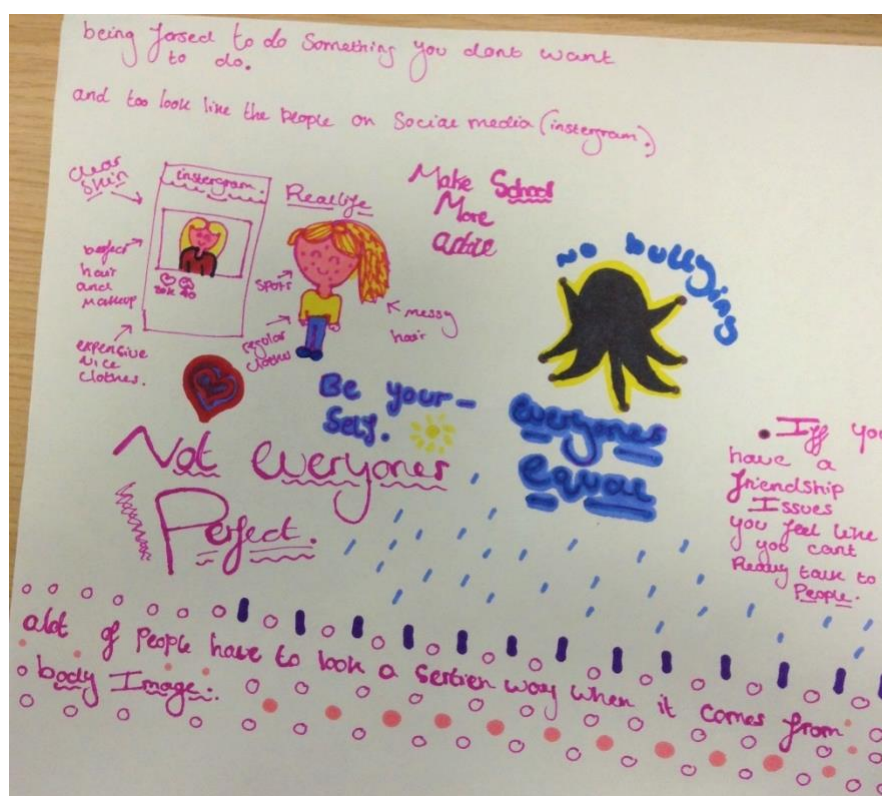 being forsed to do Something you dont want
to do.
and too look like the people on Social media (instergram.)
Clear
Skin
instergram.
Real life
Make School
More
active
No bullying
perfect
hair
and
makeup
20K 40
spots
messy
hair
regular
clothes
expensive
nice
clothes.
Be your-
Self.
everyones
equal
Not everyones
Perfect.
Iff you
have a
friendship
Issues
you feel like
you cant
Really talk to
People.
alot of People have to look a sertien way when it comes from
body Image.